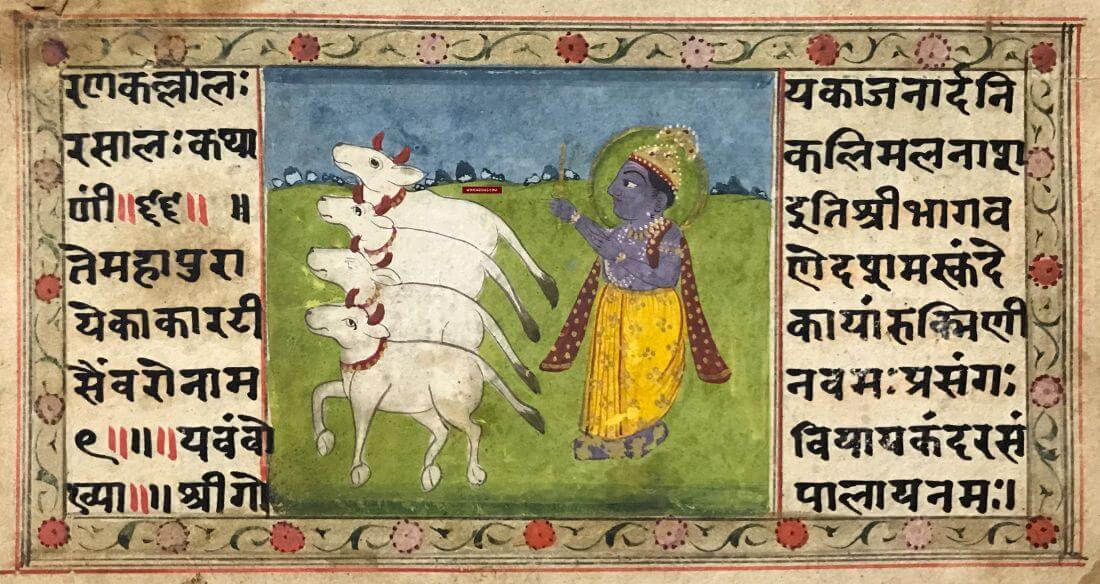 रणकल्लालः यकाजनार्दनि
रसालःकथा कलिमलनाशा
णी॥६६॥ ॥ इतिश्रीभागव
तेमहापुरा णेदशमस्कंदे
येकाकारटी कायांरुक्मिणी
सैंवरोनाम नवमःप्रसंगः
९॥॥॥यवंवो वियायकंदरसं
ख्या॥॥श्रीगो पालायनमः।